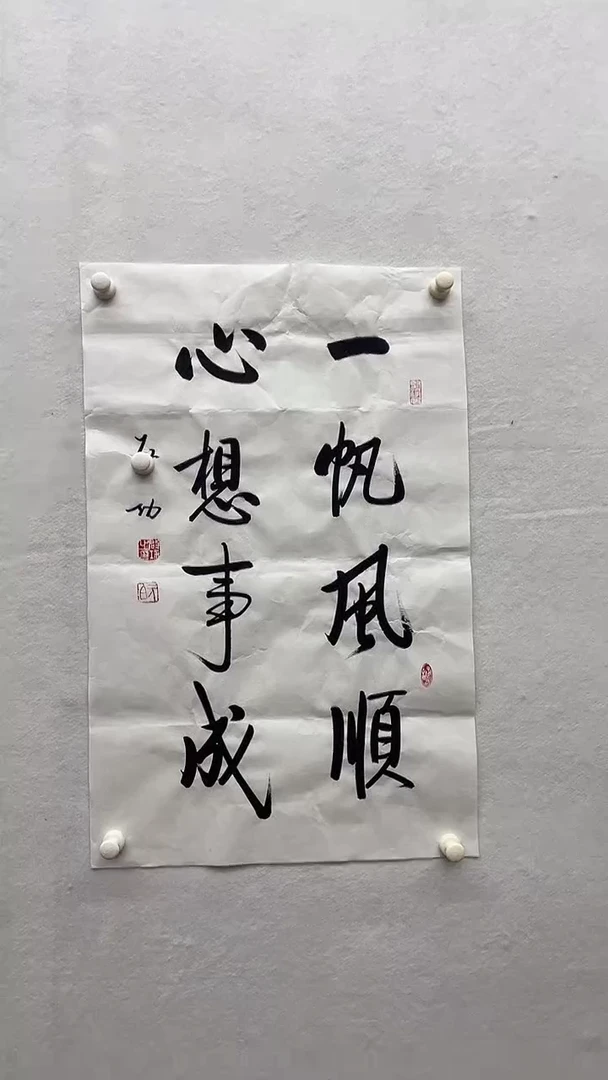 一帆風順
心想事成